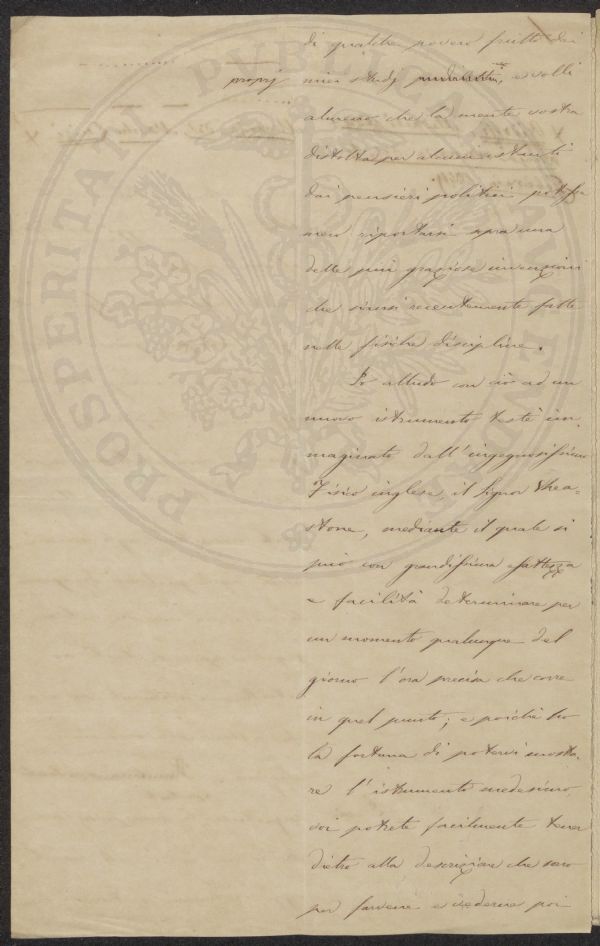 di qualche povero frutto dei
proprj
miei studj, e volli
almeno che la mente vostra
distolta per alcuni istanti
dai pensieri politici potesse
meco riportarsi sopra una
delle più graziose invenzioni
che siensi recentemente fatte
nelle fisiche discipline.
Io alludo con ciò ad un
nuovo istrumento testè im-
maginato dall'ingegnosissimo
Fisico inglese, il Signor Whea=
stone, mediante il quale si
può con grandissima esattezza
e facilità determinare per
un momento qualunque del
giorno l'ora precisa che corre
in quel punto; e poichè ho
la fortuna di potervi mostra-
re l'istrumento medesimo,
voi potrete facilmente tener
dietro alla descrizione che sono
per farvene e vederne poi
PROSPERITATI PUBLICAE